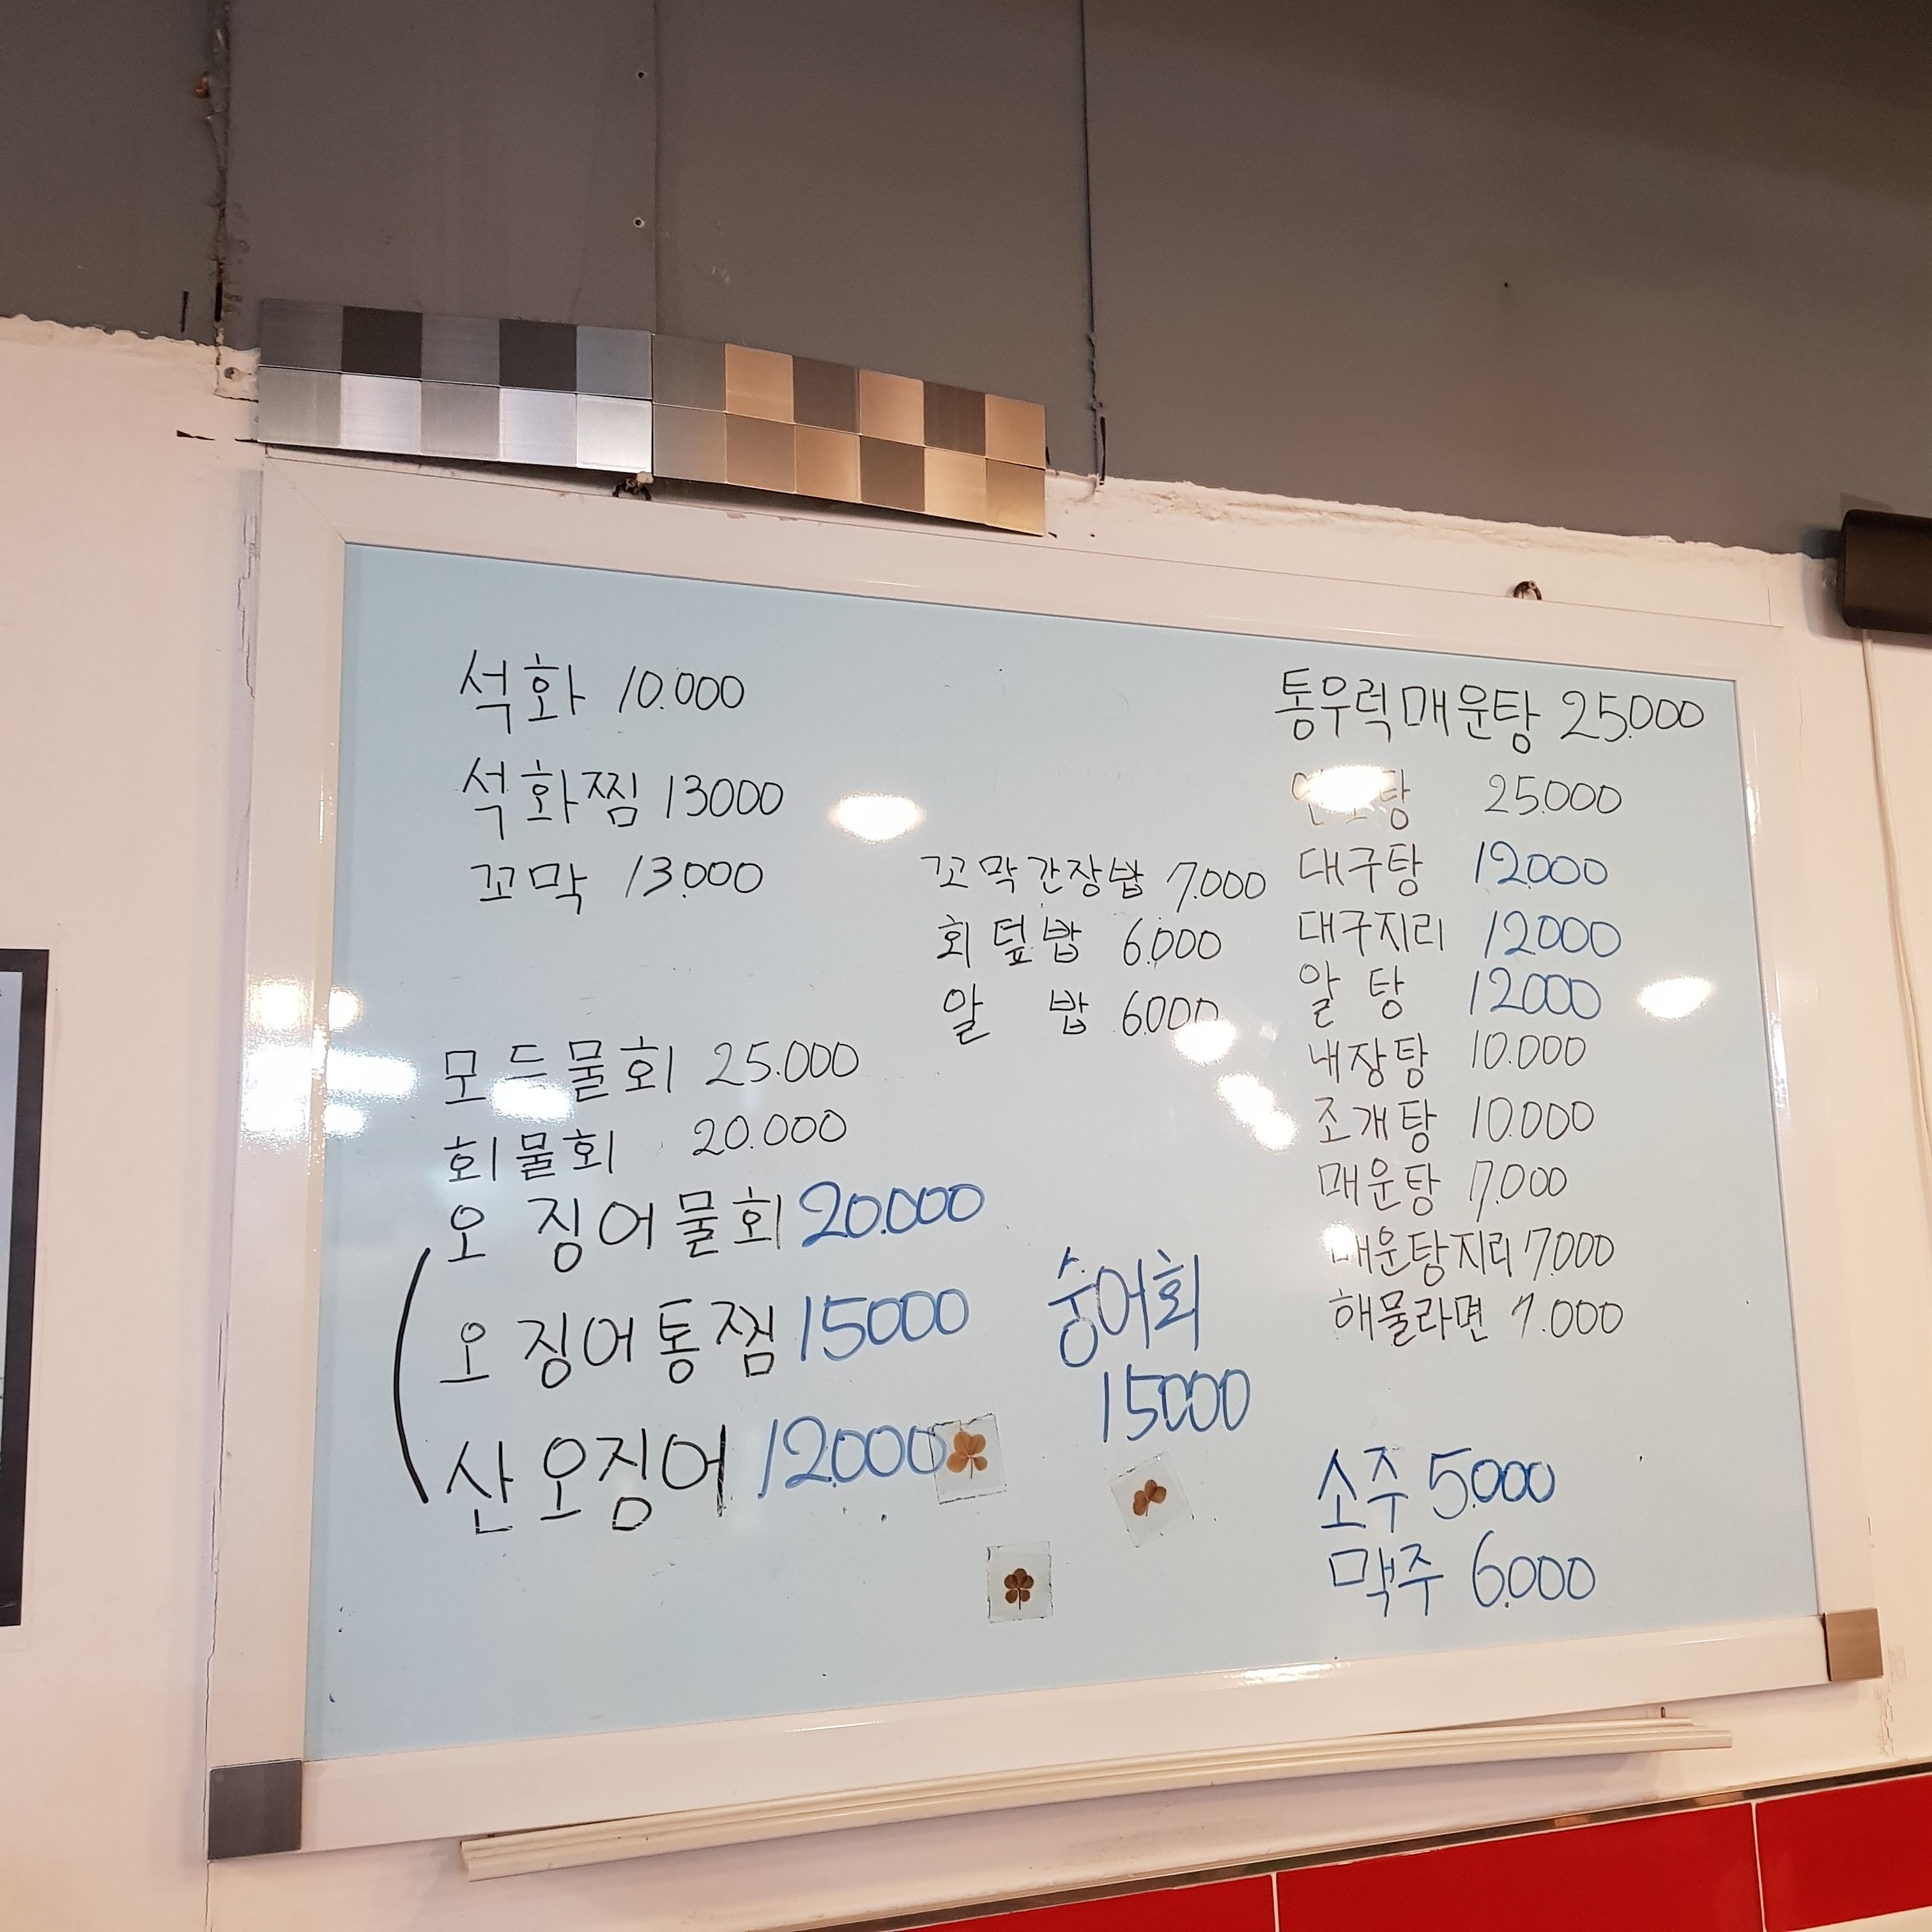 석화 10.000
석화찜 13000
꼬막 13.000
모듬물회 25.000
회물회 20.000
오징어물회 20.000
오징어통찜 15000
산오징어 12.000
꼬막간장밥 7.000
회덮밥 6.000
알 밥 6.000
숭어회
15000
통우럭매운탕 25.000
25.000
대구탕 12.000
대구지리 12000
알탕 12000
내장탕 10.000
조개탕 10.000
매운탕 7.000
매운탕지리 7.000
해물라면 7.000
소주 5.000
맥주 6.000